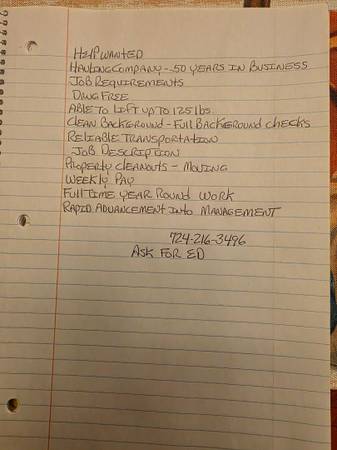 HELP WANTED
HAULING COMPANY - 50 YEARS IN BUSINESS
JOB REQUIREMENTS
DRUG FREE
ABLE TO LIFT UP TO 125 lbs.
CLEAN BACKGROUND - FULL BACKGROUND CHECKS
RELIABLE TRANSPORTATION
JOB DESCRIPTION
PROPERTY CLEANOUTS - MOVING
WEEKLY PAY
FULL TIME YEAR ROUND WORK
RAPID ADVANCEMENT INTO MANAGEMENT
724-216-3496
ASK FOR ED